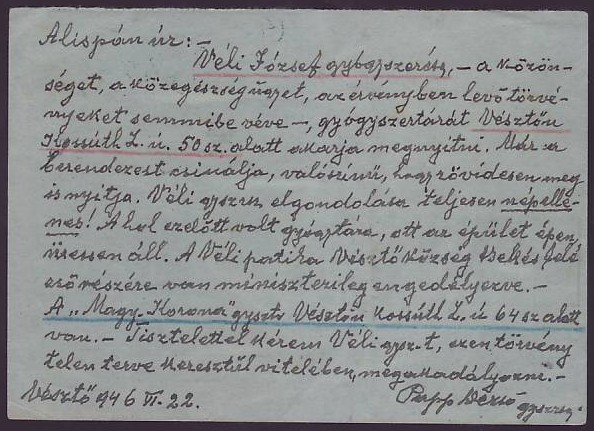 Alispán úr: -
Véli József gyógyszerész, - a közön-
séget, a közegészségügyet, az érvényben levő törvé-
nyeket semmibe véve -, gyógyszertárát Vésztőn
Kossúth L. ú. 50 sz. alatt akarja megnyitni. Már a
berendezést csinálja, valószinű, hogy rövidesen meg
is nyitja. Véli gyszész elgondolása teljesen népelle-
nes! Ahol ezelőtt volt gyógytára, ott az épület épen,
üressen áll. A Véli patika Vésztő község Békés felé
eső részére van miniszterileg engedélyezve. -
A „Magy. Korona" gysztr Vésztőn Kossúth L. ú 64 sz alatt
van. - Tisztelettel kérem Véli gysz. t, ezen törvény
telen terve keresztül vitelében, megakadályozni. -
Vésztő 946 VI. 22. Papp Dezső
gyszész.